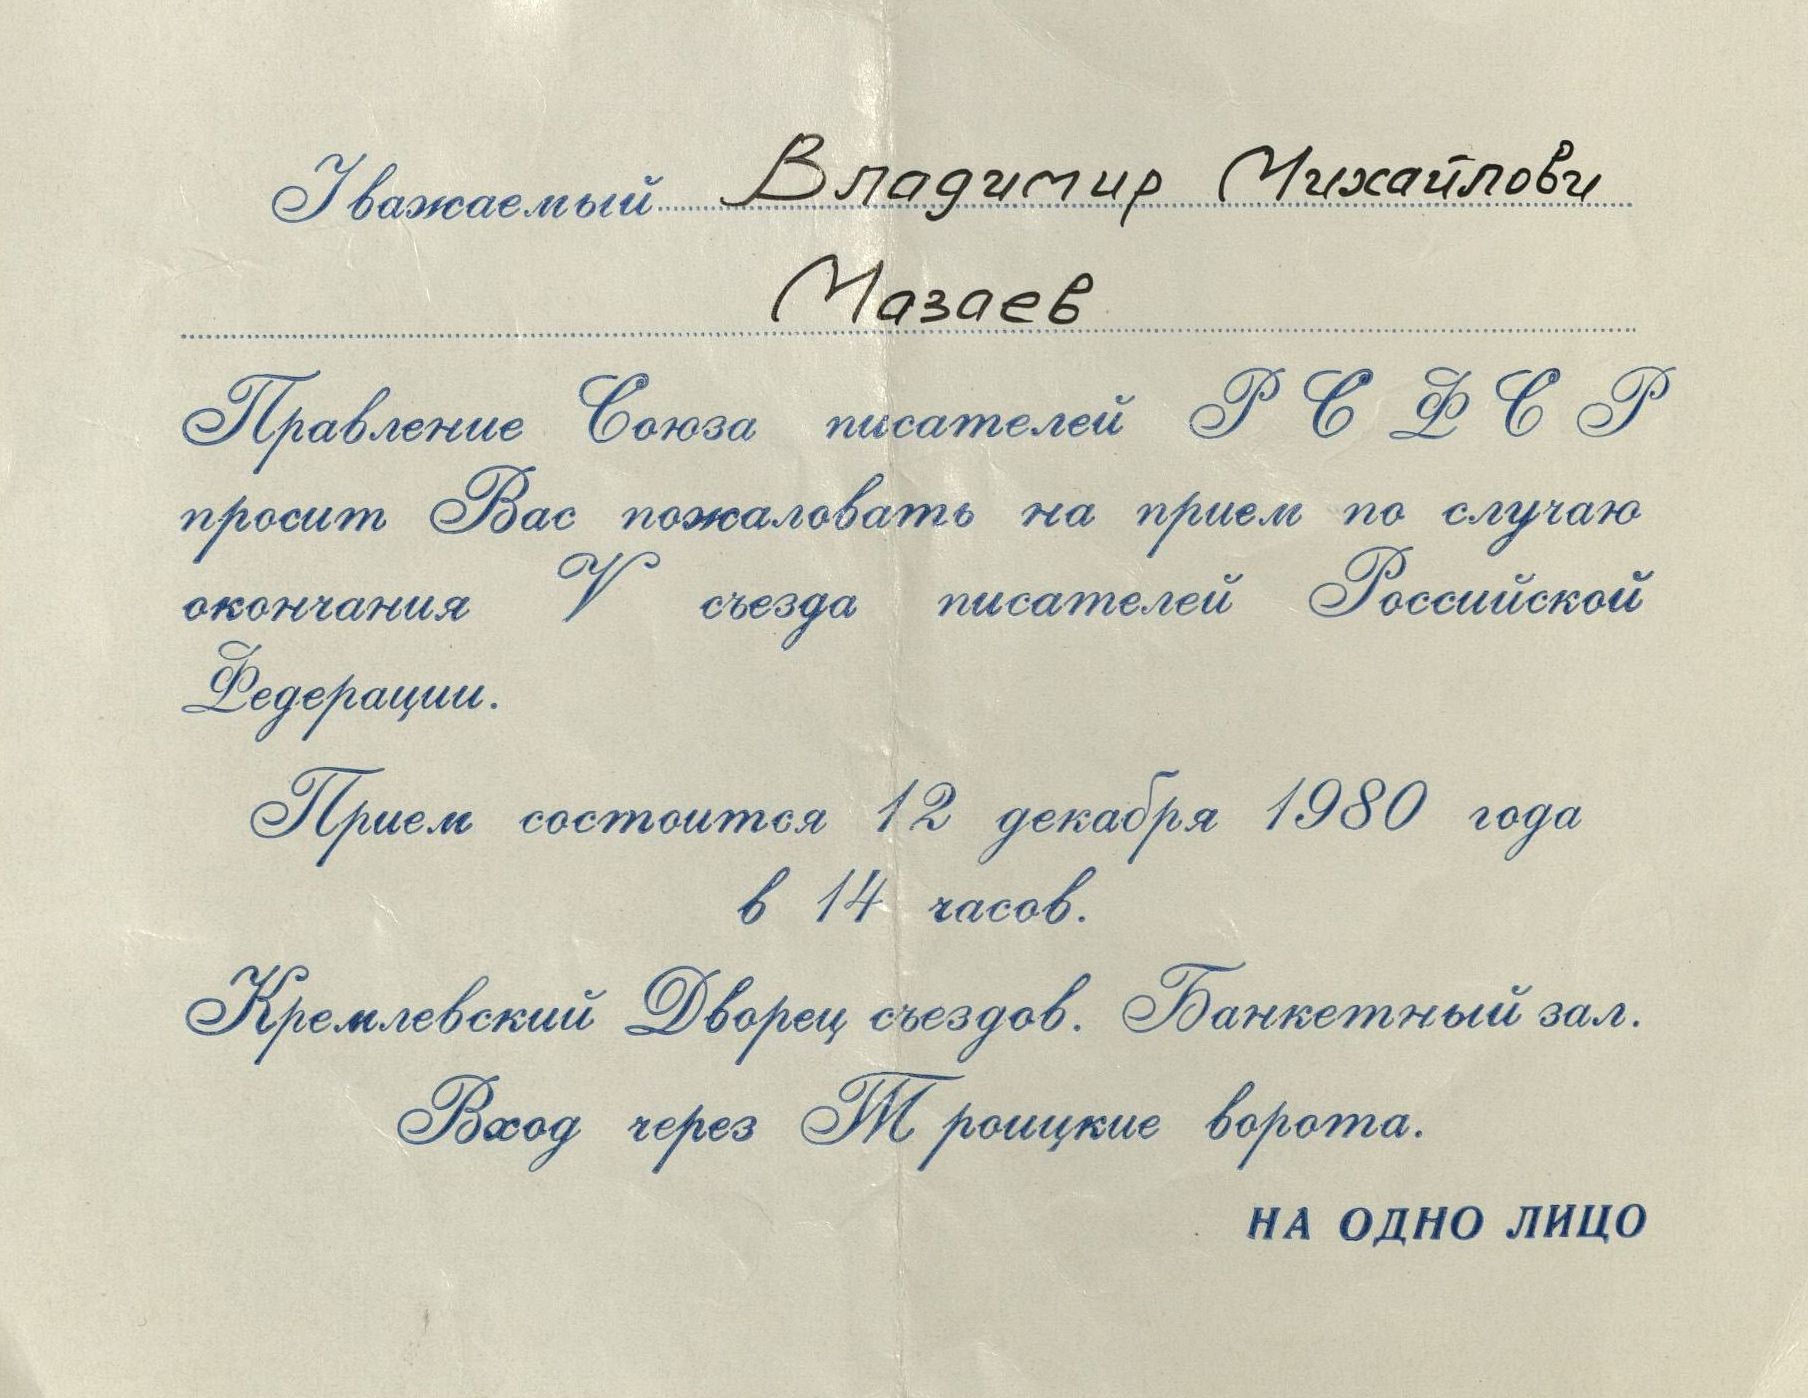 Уважаемый Владимир Михайлови
Мазаев
Правление Союза писателей РСФСР
просит Вас пожаловать на прием по случаю
окончания V съезда писателей Российской
Федерации.
Прием состоится 12 декабря 1980 года
в 14 часов.
Кремлевский Дворец съездов. Банкетный зал.
Вход через Троицкие ворота.
НА ОДНО ЛИЦО